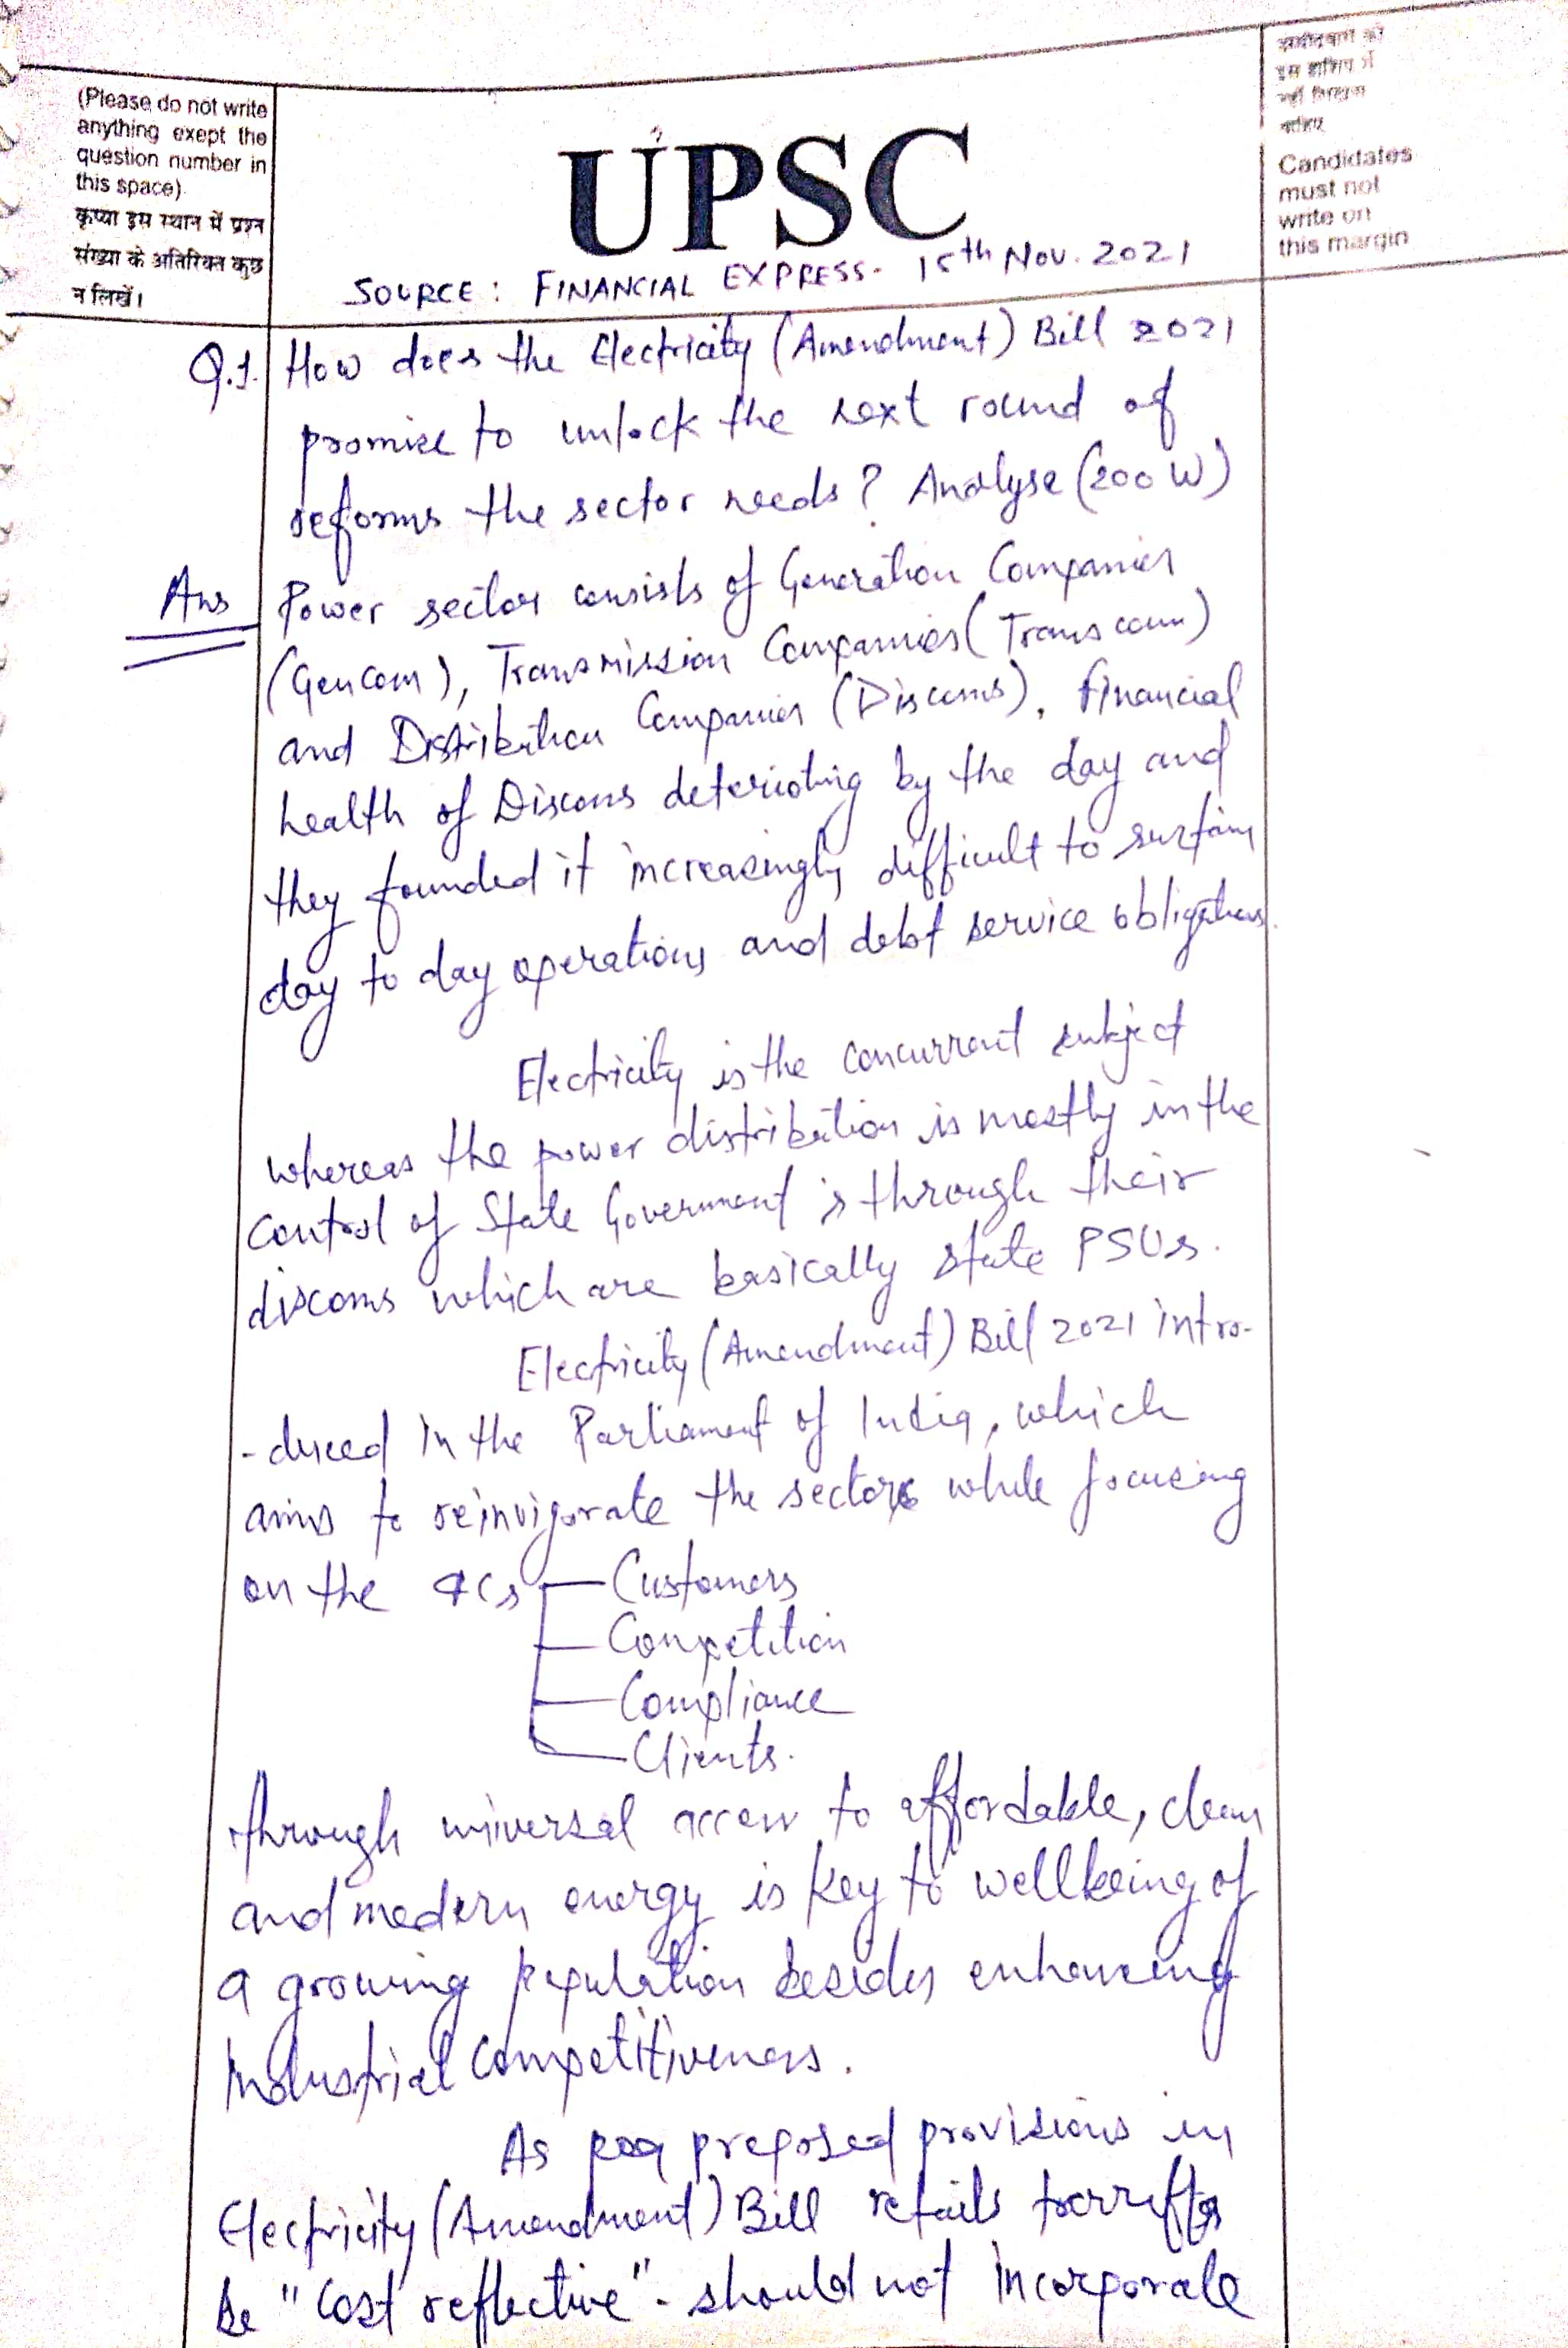 (Please do not write
anything exept the
question number in
this space)
कृप्या इस स्थान में प्रश्न
संख्या के अतिरिक्त कुछ
न लिखें।
UPSC
SOURCE : FINANCIAL EXPRESS- 15th Nov. 2021
इस हाशिए में
नहीं लिखना
चाहिए
Candidates
must not
write on
this margin
Q.1. How does the Electricity (Amendment) Bill 2021
promise to unlock the next round of
reforms the sector needs? Analyse (200 W)
Ans Power sector consists of Generation Companies
(Gencom), Transmission Companies (Transcom)
and Distribution Companies (Discoms). Financial
health of Discoms deterioting by the day and
they founded it increasingly difficult to sustain
day to day operations and debt service obligations.
Electricity is the concurrent subject
whereas the power distribution is mostly in the
control of State Government is through their
discoms which are basically state PSUs.
Electricity (Amendment) Bill 2021 intro-
-duced in the Parliament of India, which
aims to reinvigorate the sector while focusing
on the 4Cs Customers
Competition
Compliance
Clients.
through universal access to affordable, clean
and modern energy is key to wellbeing of
a growing population besides enhancing
industrial competitiveness.
As proposed provisions in
Electricity (Amendment) Bill retails tarrifs
be "Cost reflective" - should not incorporate